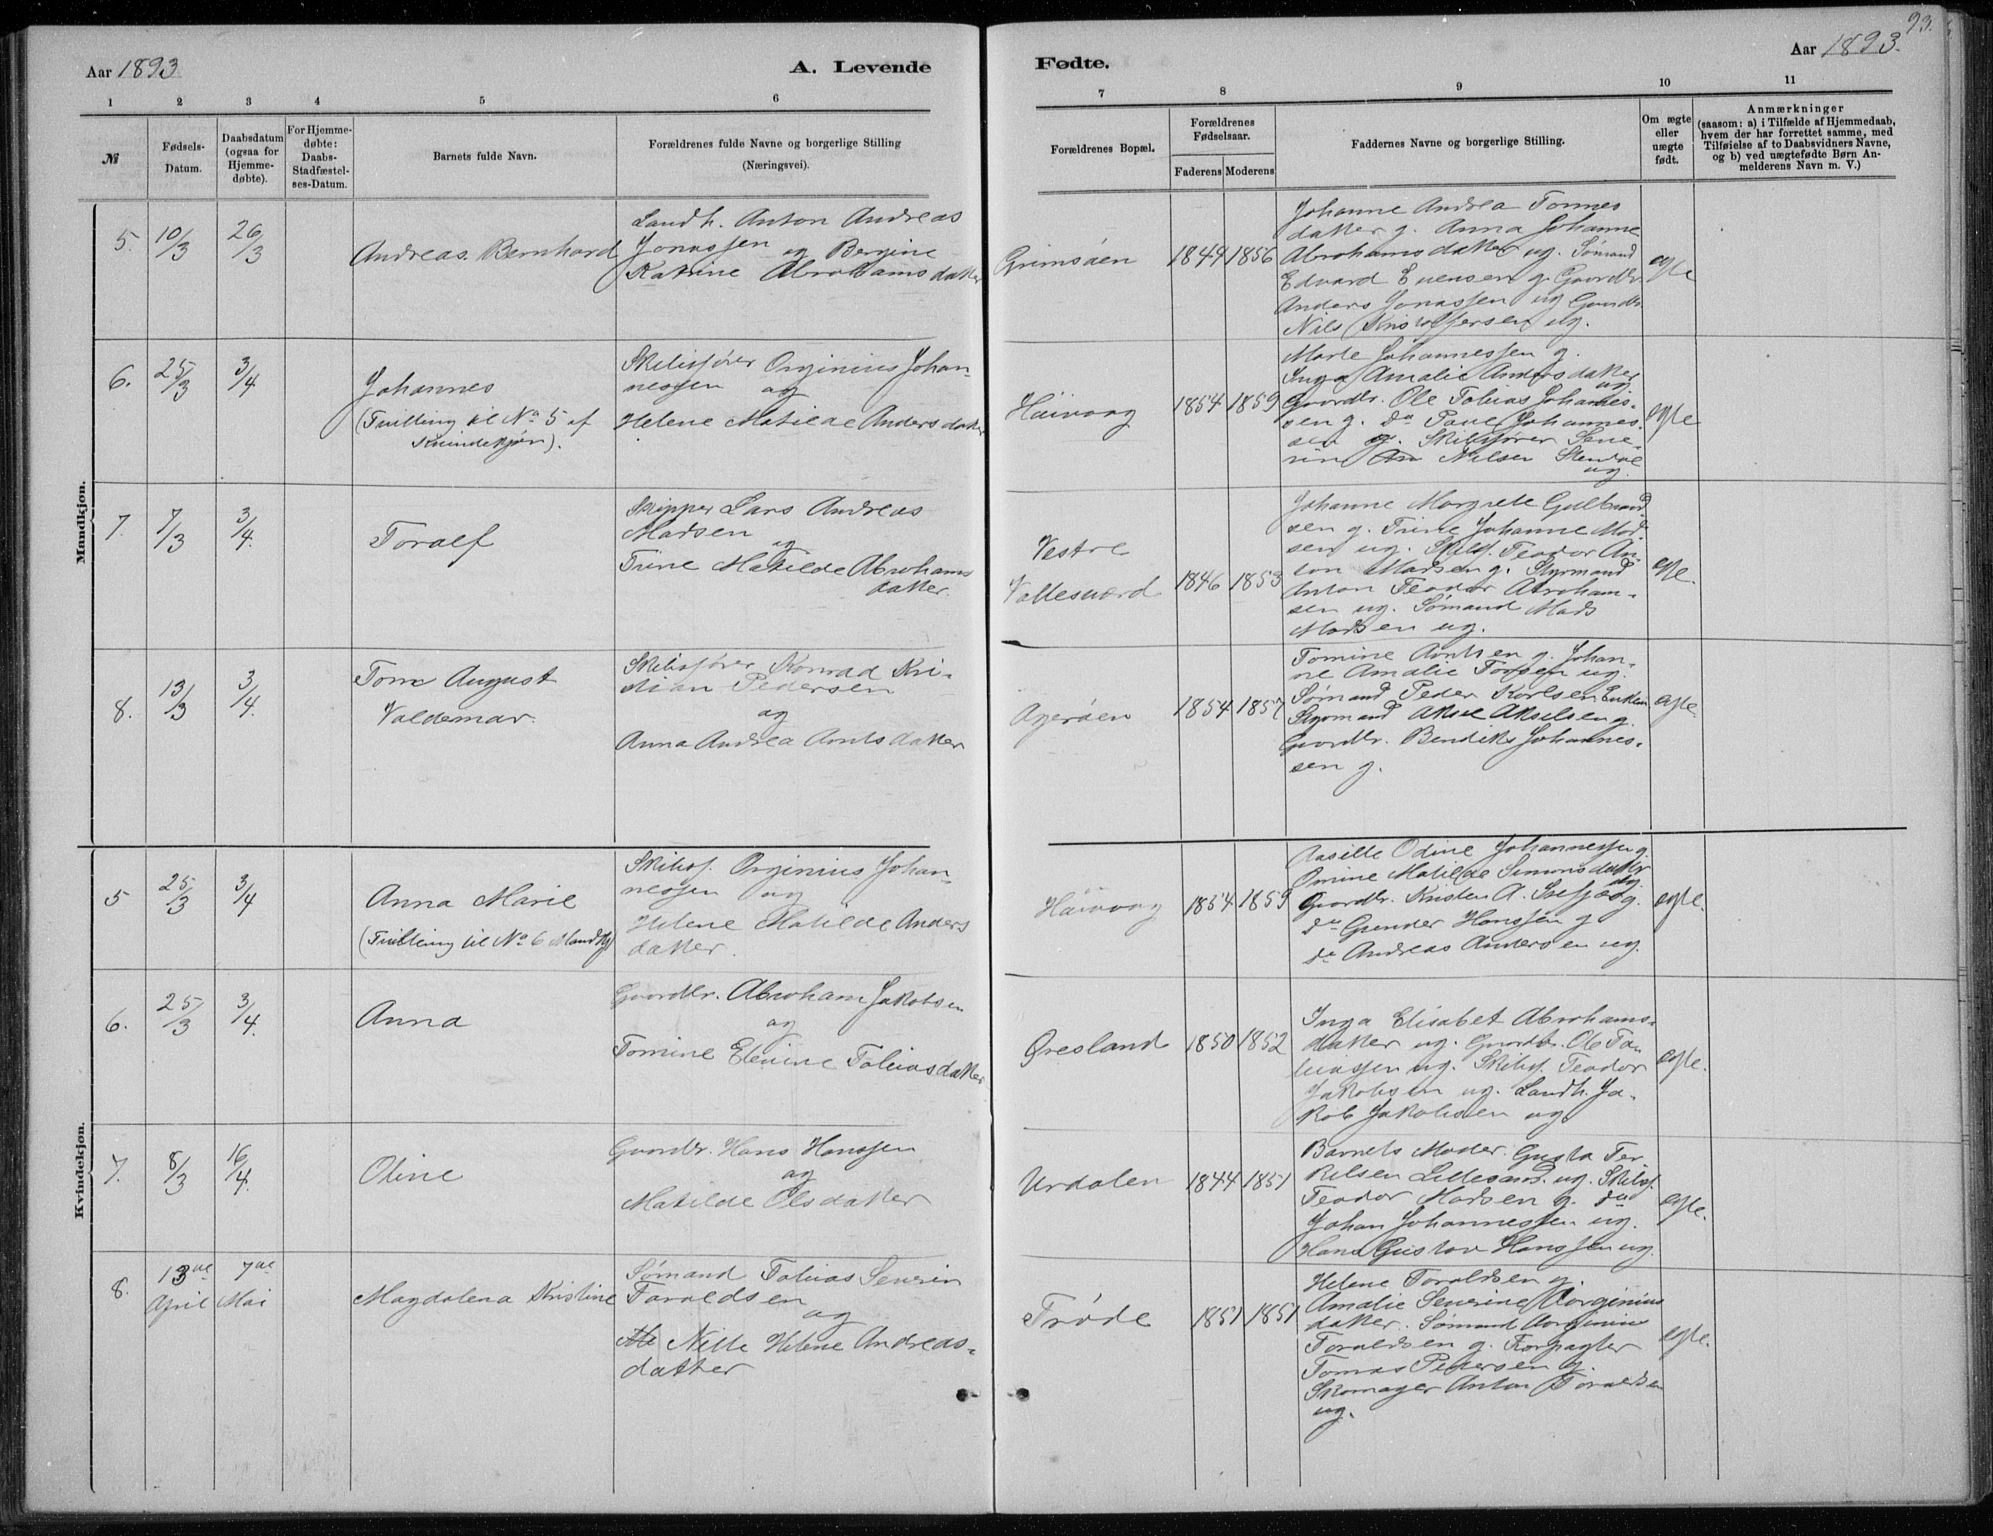 93.
Aar 1893.
A. Levende
Fødte.
Aar 1893.
1
2
3
4
5
6
7
8
9
10
11
№
Fødsels-
Datum.
Daabsdatum
(ogsaa for
Hjemme-
døbte).
For Hjemme-
døbte:
Daabs-
Stadfæstel-
ses-Datum.
Barnets fulde Navn.
Forældrenes fulde Navne og borgerlige Stilling
(Næringsvei).
Forældrenes Bopæl.
Forældrenes
Fødselsaar.
Faderens
Moderens
Faddernes Navne og borgerlige Stilling.
Om ægte
eller
uægte
født.
Anmærkninger
(saasom: a) i Tilfælde af Hjemmedaab,
hvem der har forrettet samme, med
Tilføielse af to Daabsvidners Navne,
og b) ved uægtefødte Børn An-
melderens Navn m. V.)
Mandkjøn.
5.
10/3
26/3
Andreas Bernhard
Landh. Anton Andreas
Jonassen og Bergine
Katrine Abrahamsdatter
Grimsøen
1844
1856
Johanne Andrea Tonnes
datter g. Anna Johanne
Abrahamsdatter ug. Sømand
Edvard Evensen g. Gaardbr.
Anders Jonassen ug Gaardbr.
Nils Kristoffersen ug.
egte
6.
25/3
3/4
Johannes
(Tvilling til No 5 af
Kvindekjøn).
Skibsfører Orginius Johan-
nessen og
Helene Matilde Andersdatter
Høivaag
1854
1859
Marte Johannessen g.
Inga Amalie Andersdatter
ug
Gaardbr. Ole Tobias Johannes-
sen g. do Paul Johannes-
sen g. Skibsfører Seve-
rin Nilsen Stendal
ug.
egte
7.
7/3
3/4.
Toralf
Skipper Lars Andreas
Madsen
og
Trine Matilde Abrahams
datter.
Vestre
Vallesværd
1846
1853
Johanne Margrete Gulbrand
sen g. Trine Johanne Mad-
sen ug. Skibsf. Teodor An-
ton Madsen g. Styrmand
Anton Teodor Abraham-
sen ug. Sømand Mads
Madsen ug.
egte.
8.
13/3
3/4.
Tom August
Valdemar.
Skibsfører Konrad Kri-
stian Pedersen
og
Anna Andrea Arntsdatter
Agerøen
1854
1857
Tomine Arntsen g. Johan-
ne Amalie Torsen ug.
Sømand Peder Karlsen Enkem
Styrmand Aksel Akselsen g.
Gaardbr. Bendiks Johannes-
sen g.
egte.
Kvindekjøn.
5
25/3
3/4
Anna Marie
(Tvilling til No 6 Mandkj)
Skibsf. Orginius Johan-
nessen og
Helene Matilde Anders
datter.
Høivaag
1854
1859
Aasille Odine Johannessen g.
Omine Matilde Simonsdatter
ug.
Gaardbr. Kristen A. g.
do Gunder Hanssen g
do Andreas Andersen ug.
egte.
6.
25/3
3/4.
Anna
Gaardbr. Abraham Jakobsen
og
Tomine Elevine Tobiasdatter
Øresland
1850
1852
Inga Elisabet Abrahams-
datter ug. Gaardbr. Ole To-
biassen ug. Skibsf. Teodor
Jakobsen ug. Landh. Ja-
kob Jakobsen ug
egte.
7.
8/3
16/4.
Oline
Gaardbr. Hans Hanssen
og
Matilde Olsdatter
Urdalen
1844
1851
Barnets Moder. Gusta Ter
kelsen Lillesand. ug. Skibsf.
Teodor Madsen g. do
Johan Johannessen ug.
Hans Gustav Hanssen ug.
egte.
8.
13de
April
7de
Mai
Magdalena Kristine
Sømand Tobias Severin
Toraldsen
og
Nille Helene Andreas-
datter
Trøde
1851
1851
Helene Toraldsen g.
Amalie Severine Aorginius
datter. Sømand Aorginius
Toraldsen g. Forpagter
Tomas Pedersen g.
Skomager Anton Toraldsen
ug.
egte.